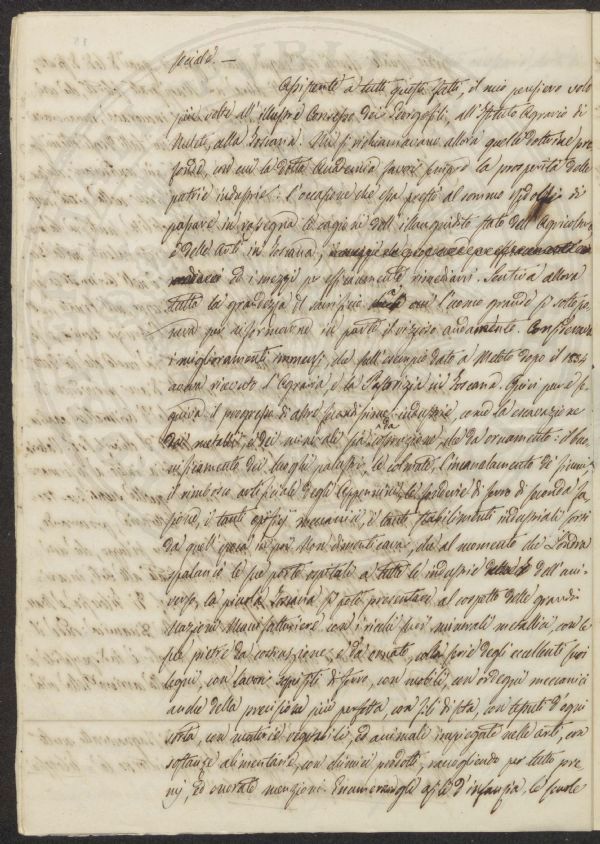 sociale. —
Aspirante a tutti questi fatti, il mio pensiero volò
più volte all'illustre Consesso dei Georgofili, all'Istituto Agrario di
Meleto, alla Toscana. Mi si richiamavano allora quelle dottrine pro
fonde, con cui la dotta Accademia favorì sempre la prosperità delle
patrie industrie: l'occasione che essa prestò al sommo Ridolfi di
passare in rassegna le cagioni dell'illanguidito stato dell'Agricoltura
e delle Arti in Toscana,
ed i mezzi per efficacemente rimediarvi. Sentiva allora
tutta la grandezza di sacrificio cui l'uomo grande si sottopo
neva per riformarne in parte il vizioso andamento. Confessava
i miglioramenti immensi, che sull'esempio dato a Meleto dopo il 1834
aveva ricevuto l'Agraria e la Pastorizia in Toscana. Quivi pure se
guiva il progresso di altre grandissime industrie, come la escavazione
dei metalli, e dei minerali sia da costruzione che da ornamento: il bo
nificamento dei luoghi palustri, le colmate, l'incanalamento de' fiumi
il rimbosco artificiale degli Appennini, le fonderie di ferro di seconda fu
sione, e tanti opifizj meccanici, e tanti stabilimenti industriali sorsi
da quell'epoca in poi. Non dimenticava, che al momento che Londra
spalancò le sue porte ospitali a tutte le industrie dell'uni
verso, la piccola Toscana si potè presentare al cospetto delle grandi
Nazioni Manifatturiere, con i ricchi suoi minerali metallici, con le
sue pietre da costruzione, e da ornato, colla serie degli eccellenti suoi
legni, con lavori squisiti di ferro, con mobili, con ordegni meccanici
anche della precisione più perfetta, con fili di seta, con tessuti d'ogni
sorta, con materie vegetabili, ed animali impiegate nelle arti, con
sostanze alimentarie, con chimici prodotti, raccogliendo per tutto pre
mj, ed onorate menzioni. Enumerangli asili d'infanzia, le scuole